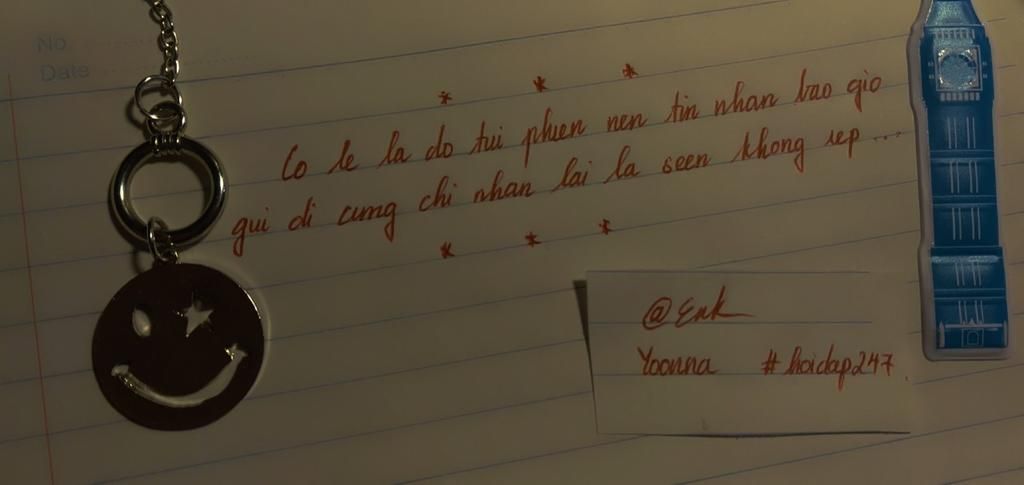 No.
Date
* * *
Co le la do tui phien nen tin nhan bao gio
gui di cung chi nhan lai la seen khong rep ...
* * *
@Enk
Yoonna #hoidap247